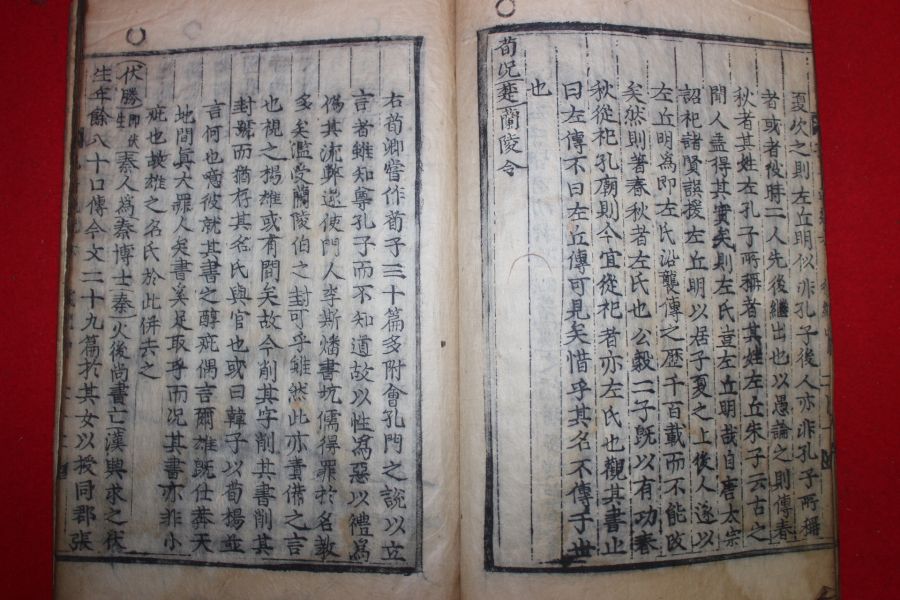 夏次之則左丘明似非孔子後人亦非孔子所稱
者或者後時二人先後繼出也以愚論之則傳春
秋者其姓左孔子所稱者其姓左丘朱子云古之
聞人盖得其實矣則左氏豈左丘明哉自唐太宗
詔祀諸賢誤援左丘明以居子夏之上後人遂以
左丘明為即左氏沿襲傳之歷千百載而不能改
矣然則著春秋者左氏也公糓二子旣以有功春
秋從祀孔廟則今宜從祀者亦左氏也觀其書止
曰左傳不曰左丘傳可見矣惜乎其名不傳于世
也
荀況楚蘭陵令
右荀卿嘗作荀子三十篇多附會孔門之說以立
言者雖知尊孔子而不知道故以性為惡以禮為
僞其流弊遂使門人李斯燔書坑儒得罪於名教
多矣濫受蘭陵伯之封可乎雖然此亦責備之言
也視之楊雄或有間矣故今削其字削其書削其
封號而猶存其名氏與官也或曰韓子以荀楊並
言何也噫彼就其書之醇疵偶言爾雄旣仕莽天
地間真大罪人矣書奚足取乎而况其書亦非小
疵也故雄之名氏於此併去之
伏勝即伏生秦人為秦博士秦火後尚書亡漢興求之伏
生年餘八十口傳今文二十九篇於其女以授同郡張